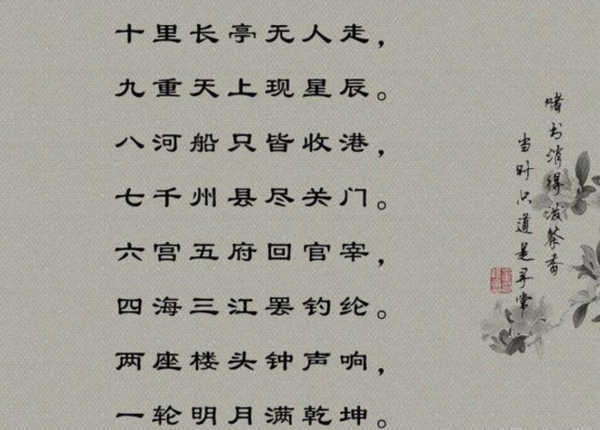 十里长亭无人走，
九重天上现星辰。
八河船只皆收港，
七千州县尽关门。
六宫五府回官宰，
四海三江罢钓纶。
两座楼头钟声响，
一轮明月满乾坤。
赌书消得泼茶香
当时只道是寻常